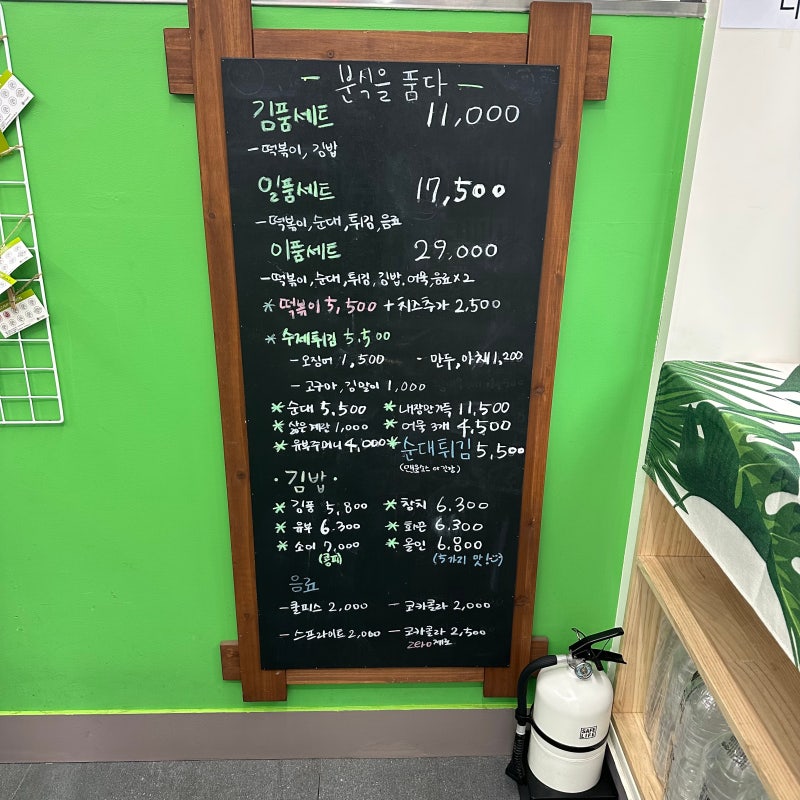 - 분식을 품다 -
김품세트 11,000
- 떡볶이, 김밥
일품세트 17,500
- 떡볶이, 순대, 튀김, 음료
이품세트 29,000
- 떡볶이, 순대, 튀김, 김밥, 어묵, 음료 x 2
* 떡볶이 5,500 + 치즈추가 2,500
* 수제튀김 5,500
- 오징어 1,500 - 만두, 야채 1,200
- 고구마, 김말이 1,000
* 순대 5,500 * 내장만가득 11,500
* 삶은계란 1,000 * 어묵 3개 4,500
* 유부주머니 4,000 * 순대튀김 5,500
· 김밥 ·
* 김품 5,800 * 참치 6.300
* 유부 6.300 * 화근 6,300
* 소이 7,000 * 올인 6,800
(콩피) (5가지 맛)
음료
- 쿨피스 2,000 - 코카콜라 2,000
- 스프라이트 2,000 - 코카콜라 2,500
zero 제로
SAFE LIFE